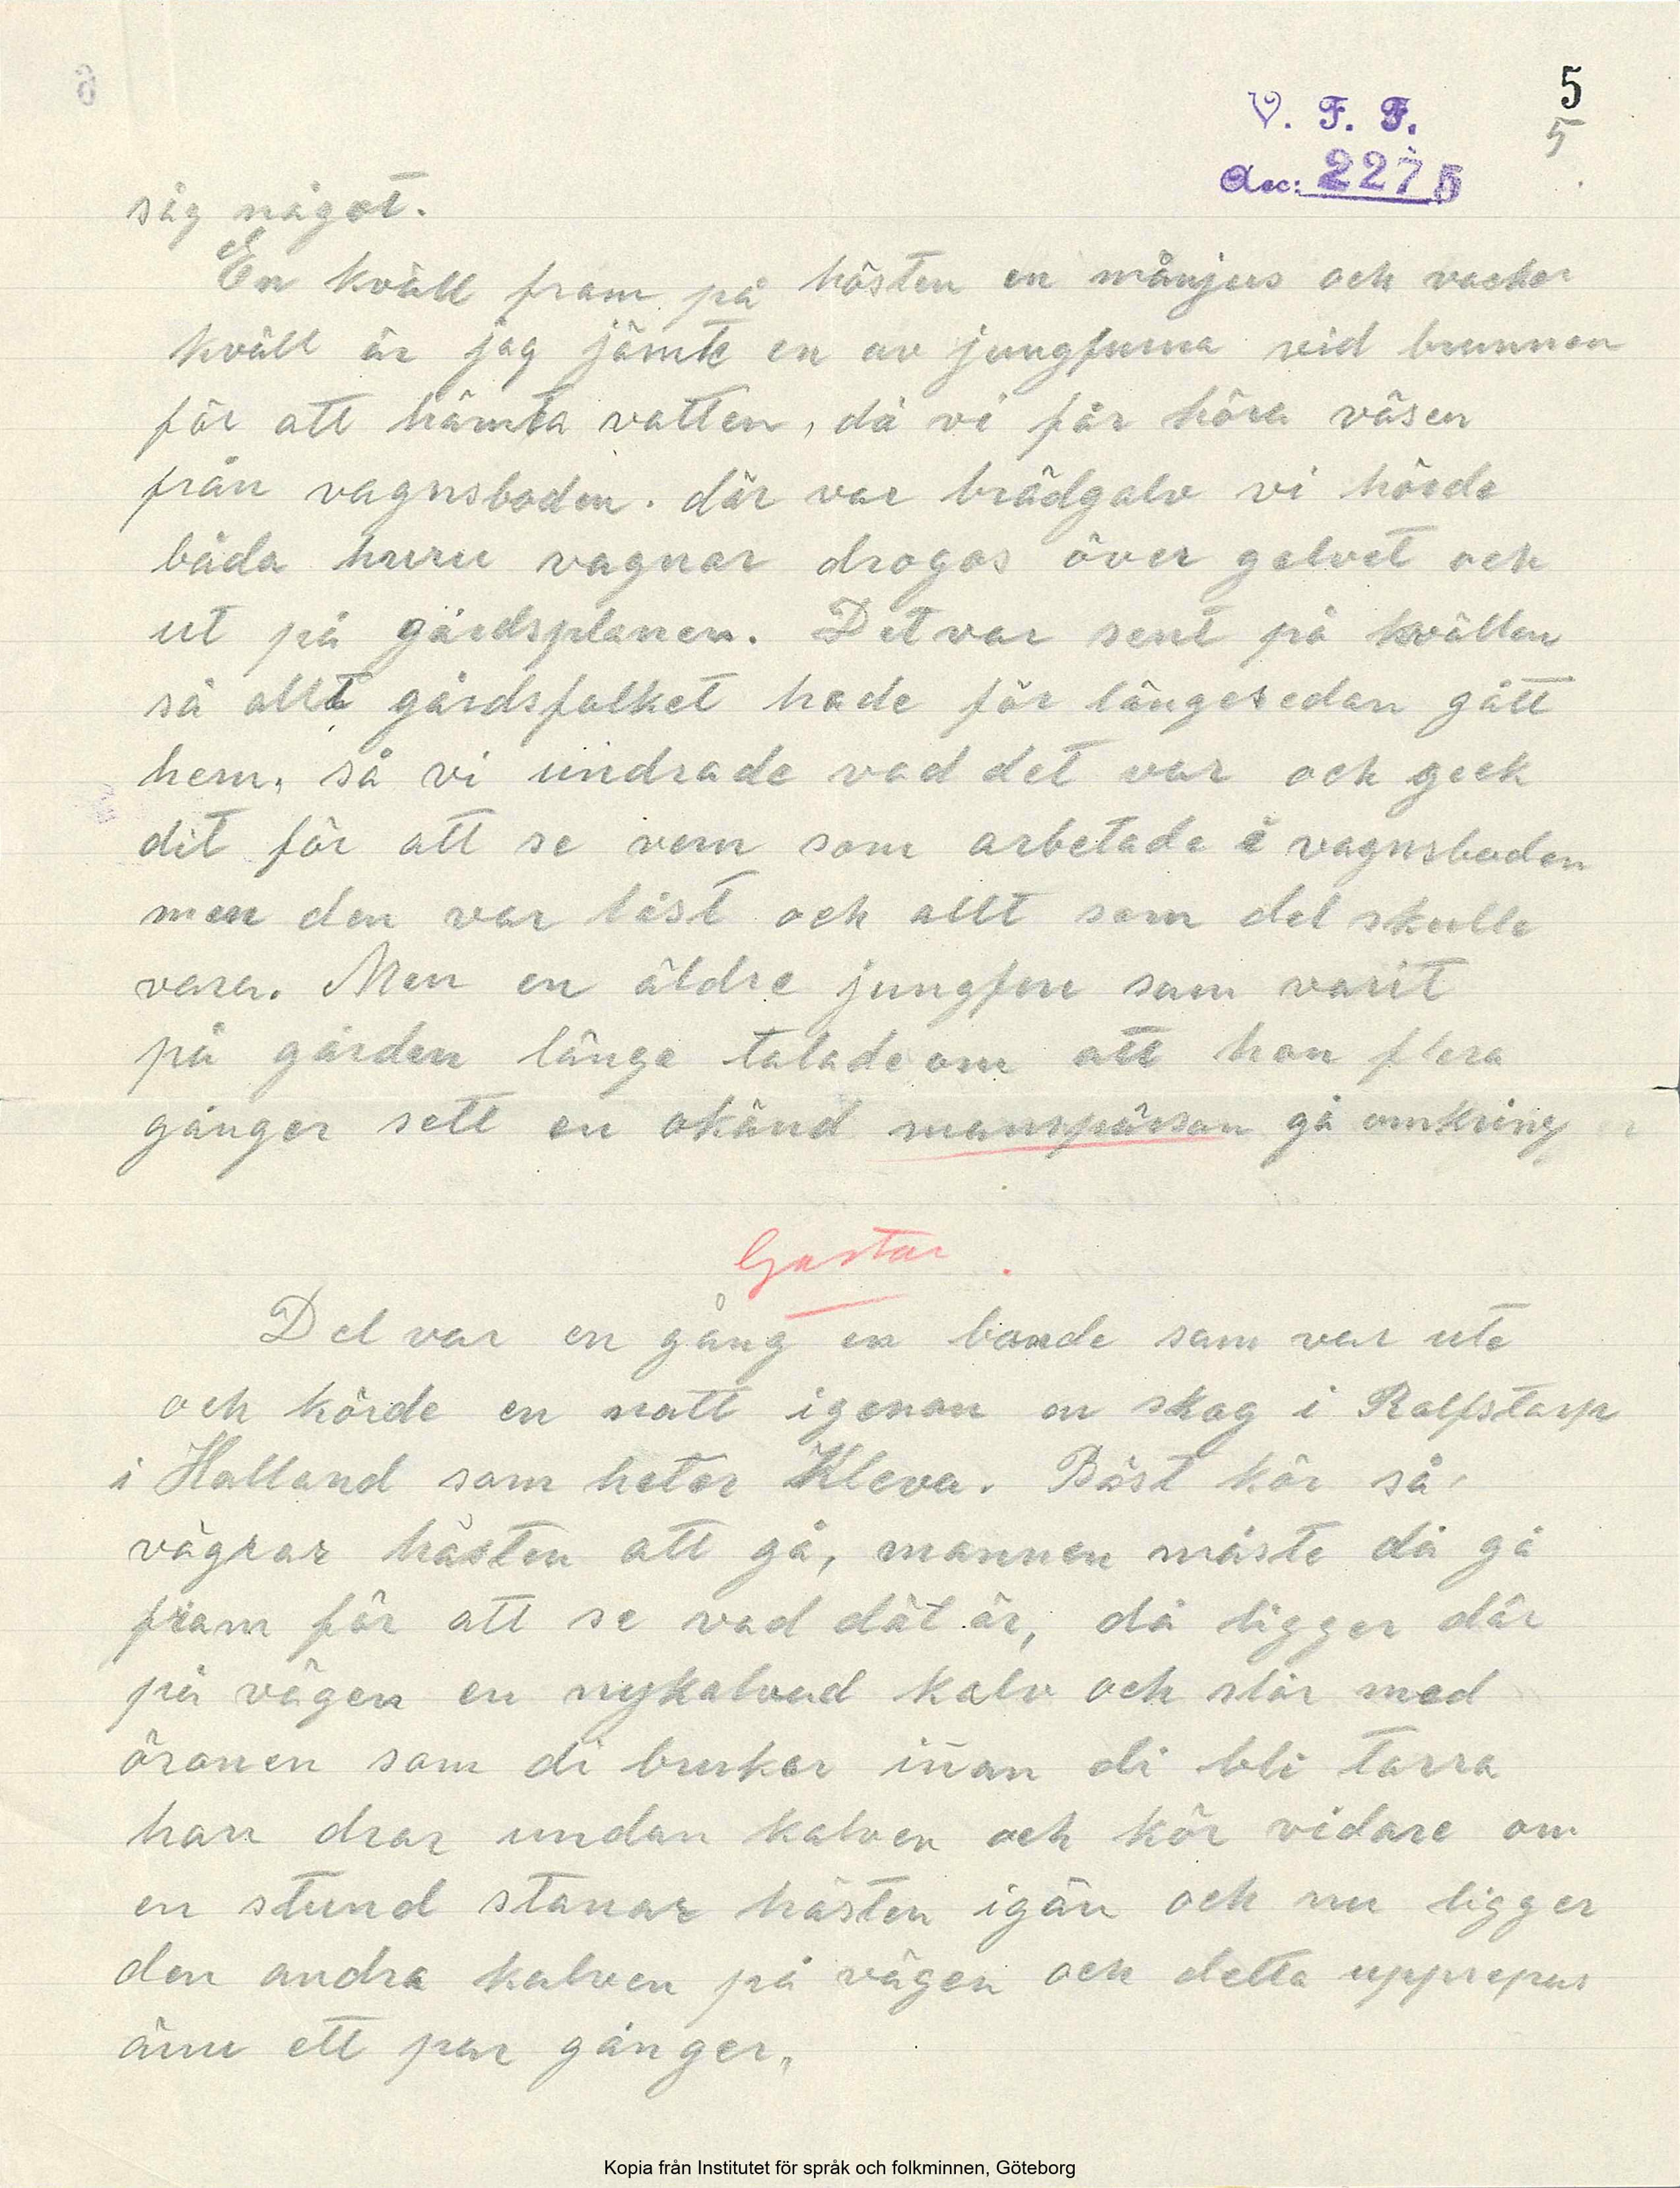 5
V. F. F.
5
Acc: 2275
såg något.
En kväll fram på hösten en månjus och vacker
kväll är jag jämte en av jungfurna vid brunnen
för att hämta vatten, då vi får höra väsen
från vagnsboden. där var brädgolv vi hörde
båda huru vagnar drogos över golvet och
ut på gårdsplanen. Det var sent på kvällen
så allt gårdsfolket hade för längesedan gått
hem, så vi undrade vad det var och geck
dit för att se vem som arbetade i vagnsboden
men den var låst och allt som det skulle
vara. Men en äldre jungfru som varit
på gården länge talade om att hon flera
gånger sett en okänd manspärson gå omkring
Gastar.
Det var en gång en bonde som var ute
och körde en natt igenon en skog i Rolfstorp
i Halland som heter Kleva. Bäst kör så
vägrar hästen att gå, mannen måste då gå
fram för att se vad dät är, då ligger där
på vägen en nykalvad kalv och slår med
öronen som di bruker innan di bli torra
han drar undan kalven och kör vidare om
en stund stanar hästen igän och nu ligger
den andra kalven på vägen och detta upprepas
ännu ett par gånger.
Kopia från Institutet för språk och folkminnen, Göteborg